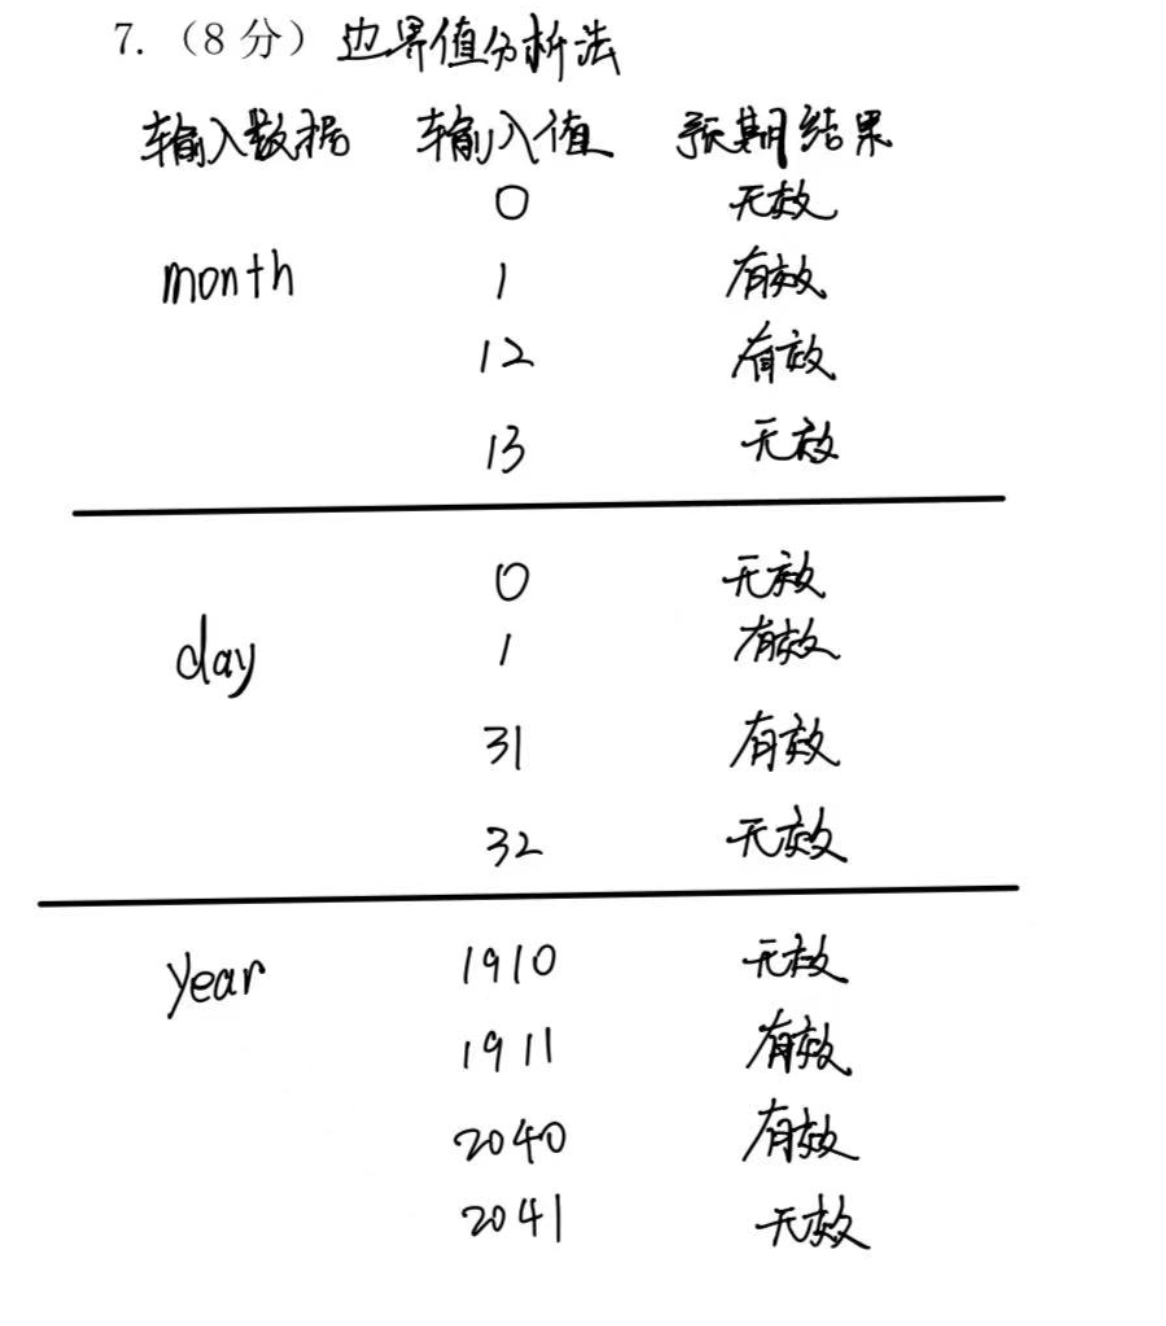 7.（8 分）边界值分析法
输入数据 输入值 预期结果
0 无效
month 1 有效
12 有效
13 无效
0 无效
day 1 有效
31 有效
32 无效
year 1910 无效
1911 有效
2040 有效
2041 无效